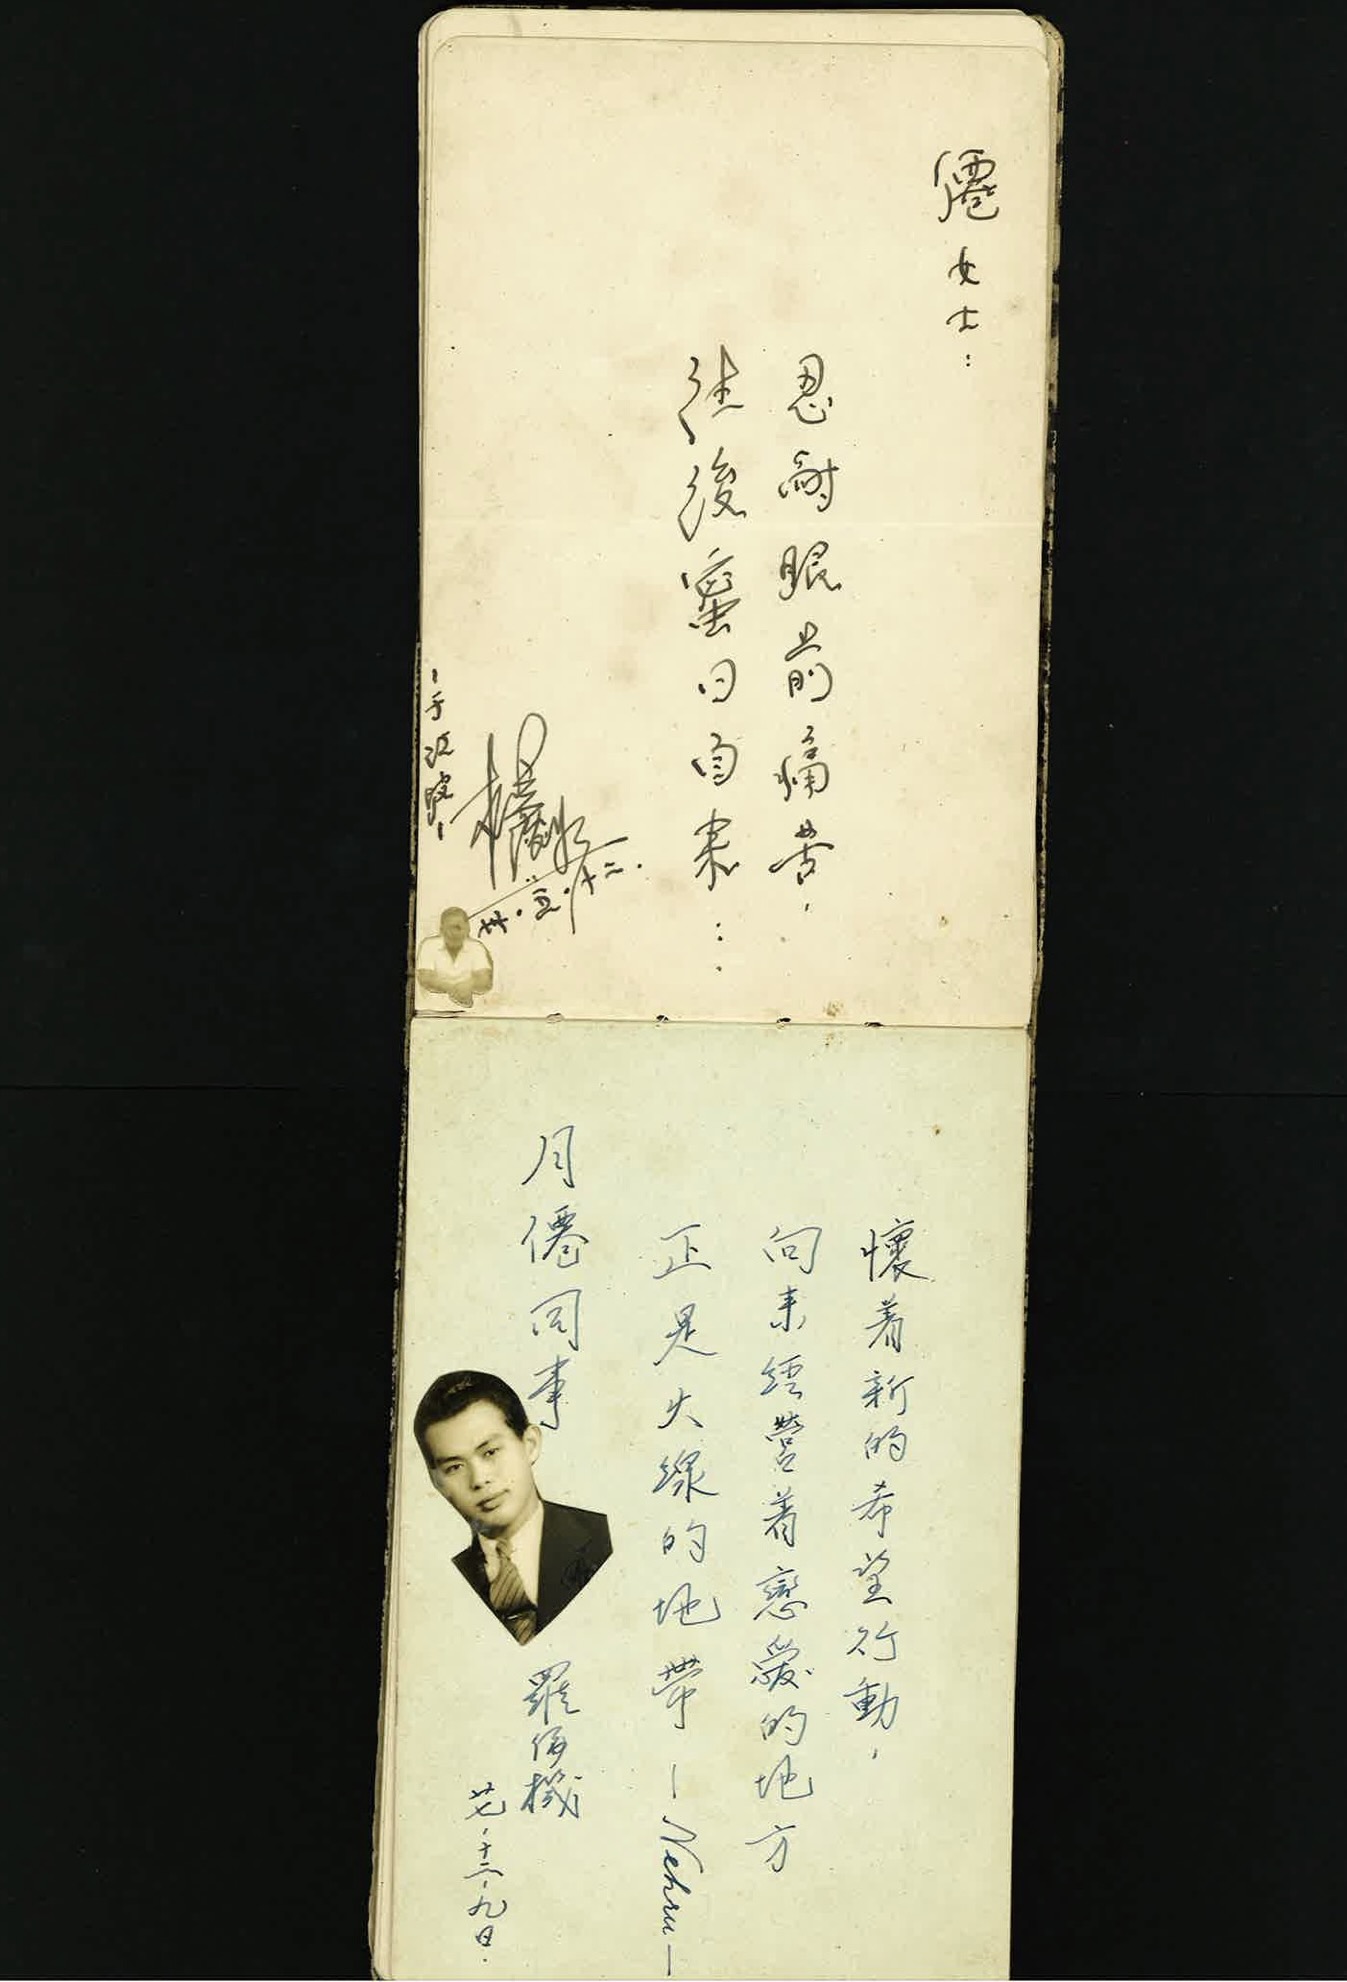 僊女士：
忍耐眼前痛苦，
往後蜜日自來…
卅·五·十二.
懷着新的希望行動，
向来經營着戀愛的地方
正是火線的地帶—Nehru—
月僊同事
羅
機
廿七·十二·九日.